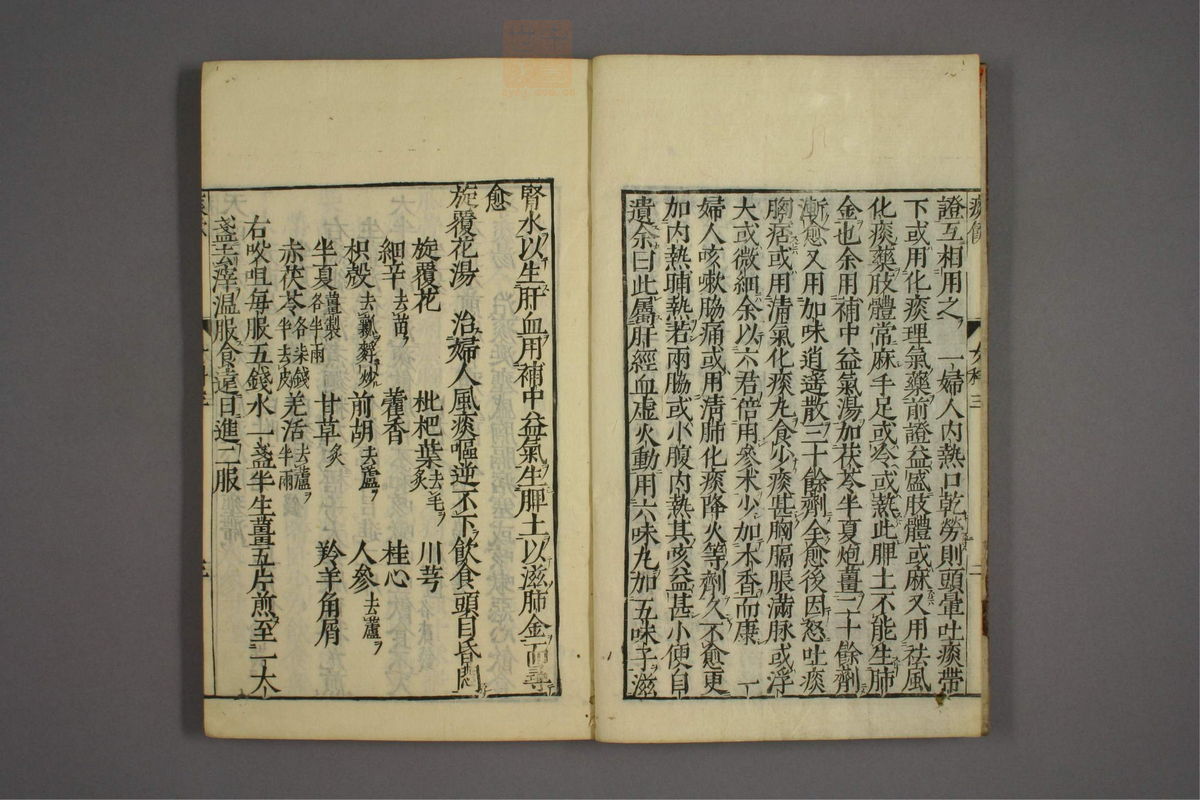 證互相用之 一婦人内熱口乾勞則頭暈吐痰帶
下或用化痰理氣藥前證益盛肢體或麻又用祛風
化痰藥肢體常麻手足或冷或熱此脾土不能生肺
金也余用補中益氣湯加茯苓半夏炮薑二十餘劑
漸愈又用加味逍遙散三十餘劑全愈後因怒吐痰
胸痞或用清氣化痰丸食少痰甚胸膈脹滿脉或浮
大或微細余以六君倍用參朮少加木香而康 一
婦人咳嗽脇痛或用清肺化痰降火等劑久不愈更
加内熱晡熱若兩脇或小腹内熱其咳益甚小便自
遺余曰此屬肝經血虛火動用六味丸加五味子滋
腎水以生肝血用補中益氣生脾土以滋肺金而尋
愈
旋覆花湯 治婦人風痰嘔逆不下飲食頭目昏悶
旋覆花 枇杷葉去毛炙 川芎
細辛去苗 藿香 桂心
枳殼去瓤麩炒 前胡去蘆 人參去蘆
半夏薑製各半兩 甘草炙 羚羊角屑
赤茯苓各柒錢半去皮 羌活去蘆半兩
右㕮咀每服五錢水一盞半生薑五片煎至一大
盞去滓溫服食遠日進二服